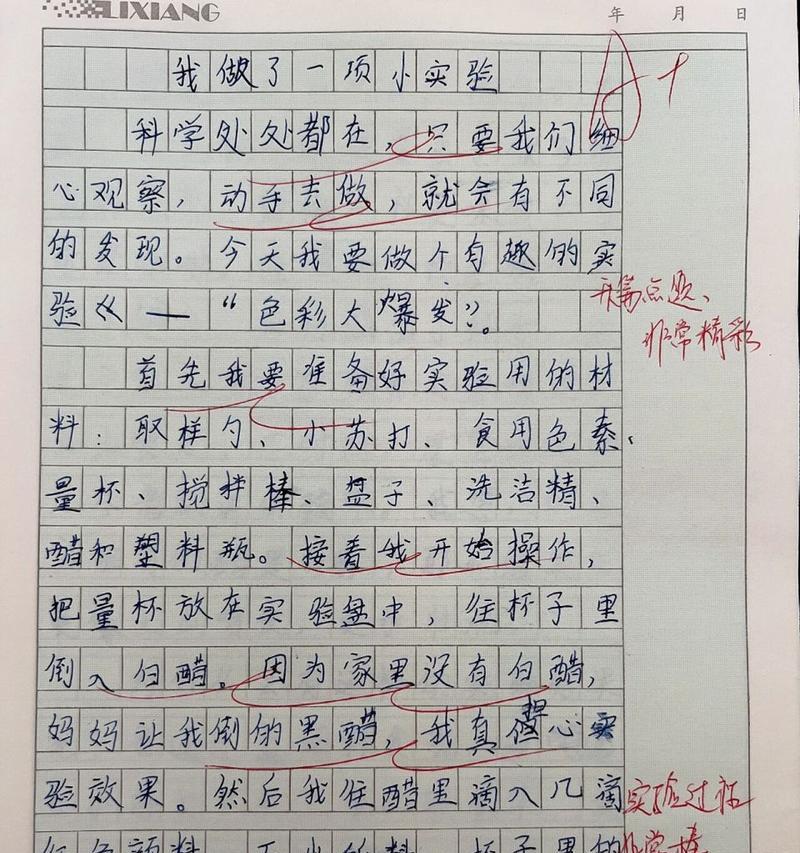 LIXIANG
年 月 日
A+
我做了一项小实验
科学处处都在，只要我们细
心观察，动手去做，就会有不同
的发现。今天我要做个有趣的实
验《—“色彩大爆发”。
开篇点题、
非常精彩
首先我要准备好实验用的材
料：取样勺、小苏打、食用色素、
量杯、搅拌棒、盘子、洗洁精、
醋和塑料瓶。接着我开始操作，
把量杯放在实验盘中，往杯子里
倒入白醋。因为家里没有白醋，
妈妈让我倒的黑醋，我真担心实
验效果。然后我往醋里滴入几滴
实验过程
非常棒